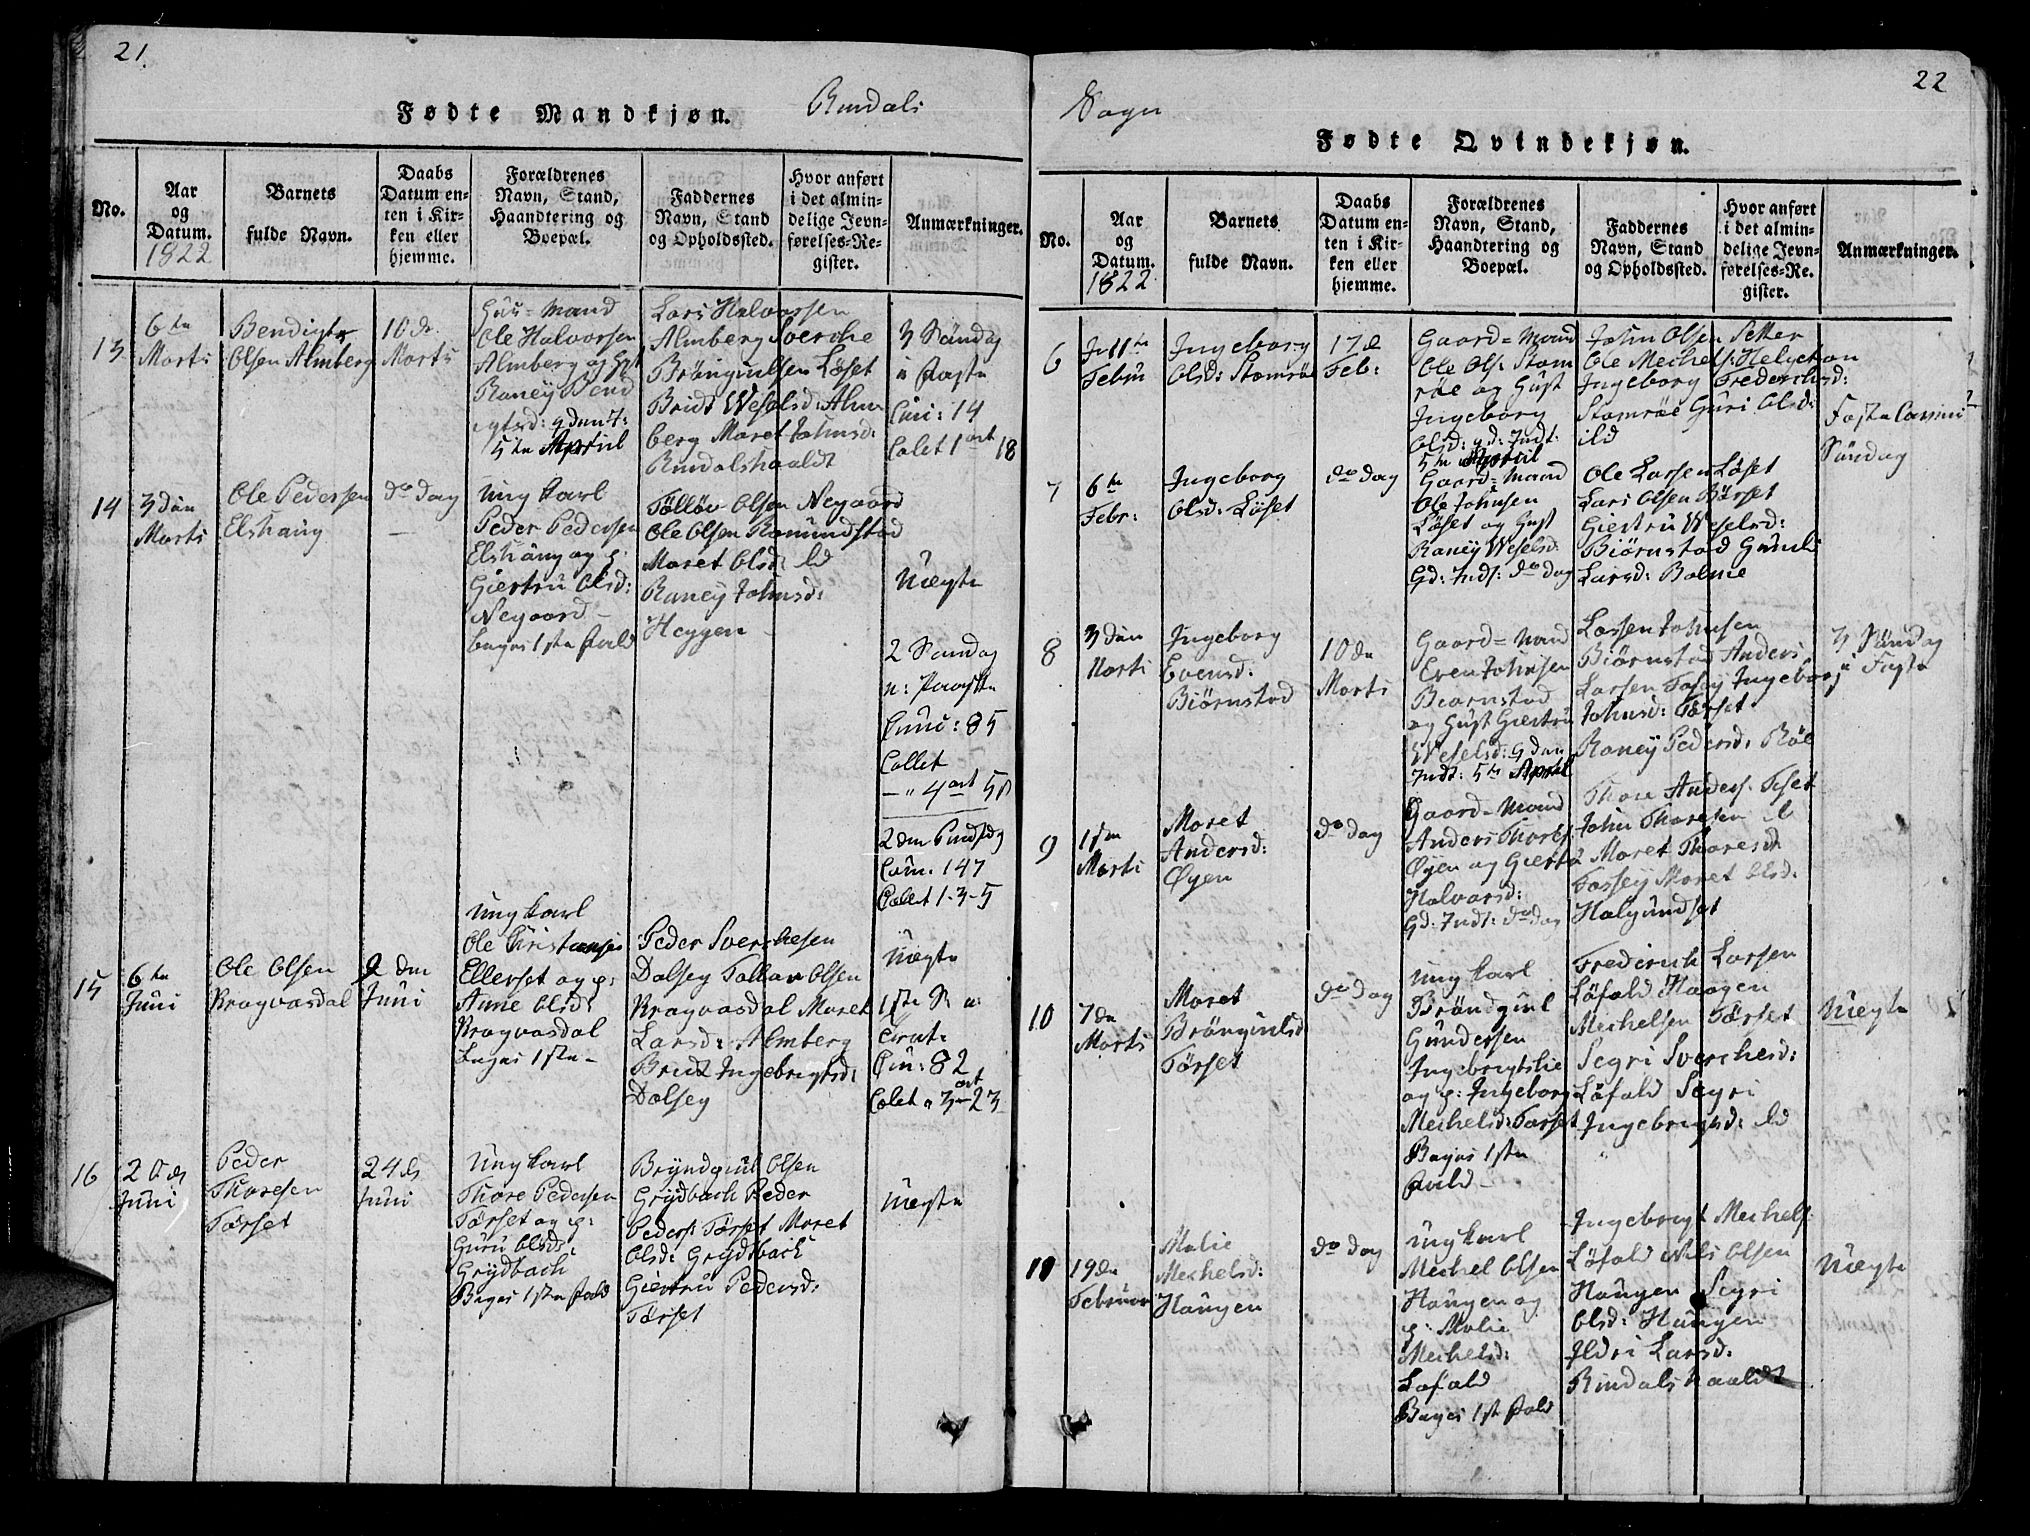 21.
Fødte Mandkjøn.
Rindals
No.
Aar og Datum. 1822
Barnets fulde Navn.
Daabs Datum enten i Kirken eller hjemme.
Forældrenes Navn, Stand, Haandtering og Boepæl.
Faddernes Navn, Stand og Opholdssted.
Hvor anført i det almindelige Jevnførelses-Register.
Anmærkninger.
13
6te
Marti
Bendigt
Olsen Almberg
10de
Marti
Huus=mand
Ole Halvorsen
Almberg og Hust
Raney Bend
igtsd: g den 7:
5te April
Lars Halvorsen
Almberg Sverche
Brøngiulsen Løset
Bridt Weselsd: Alm
berg Maret Johnsd:
Rindalshaaldt
3 Søndag
i Faste
Cuni: 14
Colet 1 ort 18
14
3 den
Marti
Ole Pedersen
Elshaug
do dag
Ung karl
Peder Pedersen
Elshaug og p:
Giertru Olsd:
Negaard
beges 1ste Fald
Tølløv Olsen Negaard
Ole Olsen Romundstad
Maret Olsd: ld
Raney Johnsd:
Heggen
Uægte
2 Søndag
n: Paaske
Cuni: 85
Collet
4 ort 5
2den Pindsdg
Cum. 147
Collet 1-3-5
15
6te
Juni
Ole Olsen
Kragvasdal
9 den
Juni
Ung karl
Ole Christensen
Ellerset og p:
Anne Olsd:
Kragvasdal
Begges 1ste
Peder Sverchesen
Dalsey Tollav Olsen
Kragvasdal Maret
Larsd: Almberg
Bridt Ingebrigtsd:
Dalsey
Uægte
1ste S: n:
Trinit:
Cuni: 82
Colet 3 ort 23
16
20de
Juni
Peder
Thoresen
Tørset
24de
Juni
Ung karl
Thore Pedersen
Tørset og p:
Guru Olsd:
Grydbach
Beges 1ste Fald
Bryndgiul Olsen
Grydbach Peder
Peders: Tørset Maret
Olsd: Grydbach
Giertru Pedersd:
Tørset
Uægte
22
Sogn
Fødte Qvindekjøn.
No.
Aar og Datum. 1822
Barnets fulde Navn.
Daabs Datum enten i Kirken eller hjemme.
Forældrenes Navn, Stand, Haandtering og Boepæl.
Faddernes Navn, Stand og Opholdssted.
Hvor anført i det almindelige Jevnførelses-Register.
Anmærkninger.
6
11te
Febru
Ingeborg
Olsd: Stomrøe
17de
Feb:
Gaard=mand
Ole Ols: Stom
røe og Hust
Ingeborg
Olsd: gd: Indt:
5te April
John Olsen Setter
Ole Mechels: Helgeton
Ingeborg Frederichsd:
Stomrøe Guri Olsd:
ild
Faste
Søndag
7
6te
Febr:
Ingeborg
Olsd: Løset
do dag
Gaard=mand
Ole Johnsen
Løset og Hust
Raney Weselsd:
Gd: Indt: do dag
Ole Larsen Løset
Lars Olsen Børset
Giertru Weselsd:
Biørnstad Gunild
Larsd: Bolme
8
3 den
Marti
Ingeborg
Evensd:
Biørnstad
10de
Marti
Gaard=mand
Even Johnsen
Biørnstad
og Hust Giertru
Weselsd: g den
Indt: 5te April
Lassen Johnsen
Biørnstad Anders
Larsen Fosey Ingeborg
Johnsd: Tørset
Raney Pedersd: Røe
3 Søndag
i Faste
9
1ste
Marti
Maret
Andersd:
Øyen
do dag
Gaard=mand
Anders Thores:
Øyen og Giertru
Halvarsd:
Gd: Indt: do dag
Thore Anders: Teset
John Thoresen ld
Maret Thoresd
Fossey Maret Olsd:
Halgundset
10
7de
Marti
Maret
Brøngiulsd
Tørset
do dag
Ung karl
Brøndgiul
Gundersen
Ingebrigtslie
og p: Ingeborg
Mechelsd: Tørset
Beges 1ste
Fald
Frederich Larsen
Løfald Haagen
Mechelsen Tørset
Segri Sverchesd:
Løfald Segri
Ingebrigtsd: ld
Uægte
11
19de
Februar
Malie
Mechelsd:
Haugen
do dag
Ung karl
Mechel Olsen
Haugen og
p: Malie
Mechelsd:
Løfald
Beges 1ste Fald
Ingebrigt Mechels:
Løfald Nils Olsen
Haugen Segri
Olsd: Haugen
Ildri Larsd:
Rindalshaaldt
Uægte